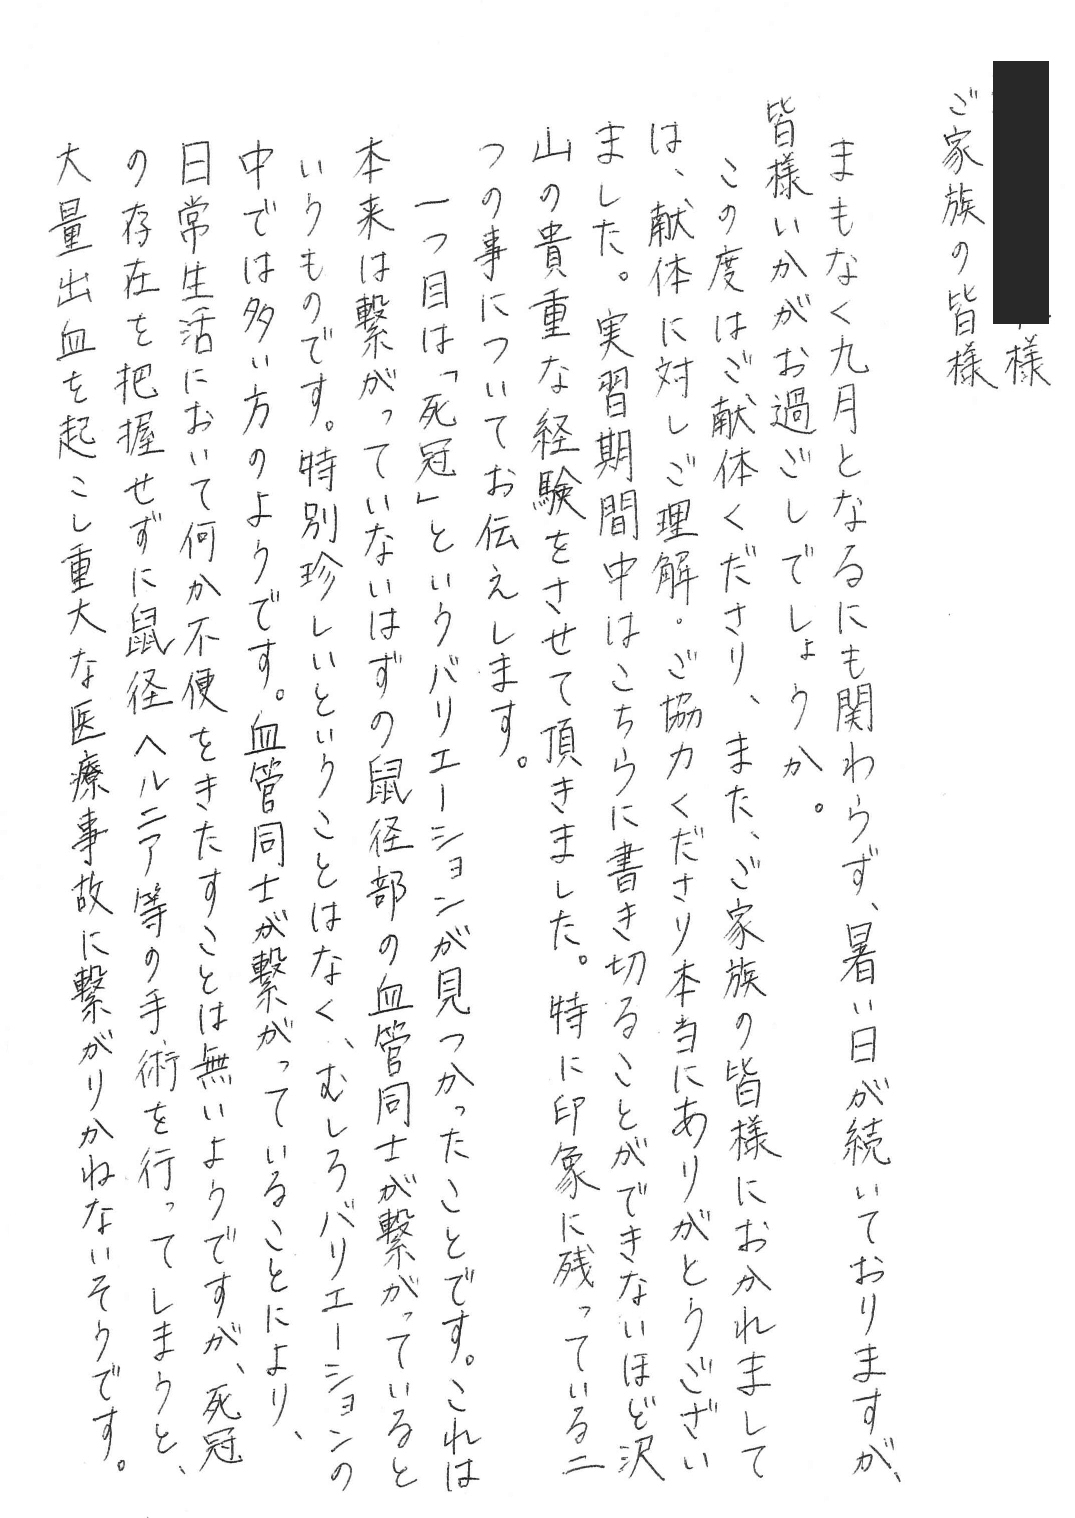 様
ご家族の皆様
まもなく九月となるにも関わらず、暑い日が続いておりますが、
皆様いかがお過ごしでしょうか。
この度はご献体くださり、また、ご家族の皆様におかれまして
は、献体に対しご理解・ご協力くださり本当にありがとうござい
ました。実習期間中はこちらに書き切ることができないほど沢
山の貴重な経験をさせて頂きました。特に印象に残っている二
つの事についてお伝えします。
一つ目は「死冠」というバリエーションが見つかったことです。これは
本来は繋がっていないはずの鼠径部の血管同士が繋がっていると
いうものです。特別珍しいということはなく、むしろバリエーションの
中では多い方のようです。血管同士が繋がっていることにより、
日常生活において何か不便をきたすことは無いようですが、死冠
の存在を把握せずに鼠径ヘルニア等の手術を行ってしまうと、
大量出血を起こし重大な医療事故に繋がりかねないそうです。